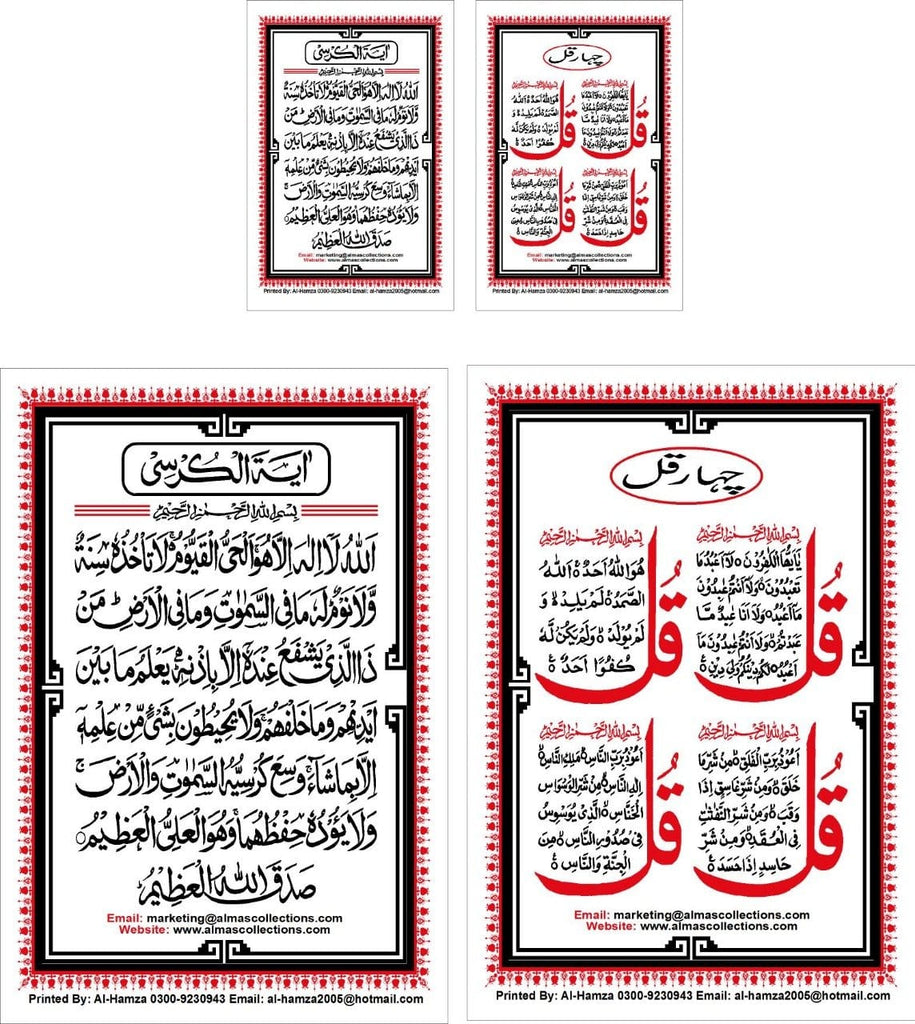 اٰيَةُ الْكُرْسِىْ
بِسْمِ اللهِ الرَّحْمٰنِ الرَّحِيْمِ
اَللهُ لَا اِلٰهَ اِلَّا هُوَ الْحَىُّ الْقَيُّوْمُ لَا تَاْخُذُهٗ سِنَةٌ
وَّلَا نَوْمٌ لَهٗ مَا فِى السَّمٰوٰتِ وَمَا فِى الْاَرْضِ مَنْ
ذَا الَّذِىْ يَشْفَعُ عِنْدَهٗ اِلَّا بِاِذْنِهٖ يَعْلَمُ مَا بَيْنَ
اَيْدِيْهِمْ وَمَا خَلْفَهُمْ وَلَا يُحِيْطُوْنَ بِشَىْءٍ مِّنْ عِلْمِهٖ
اِلَّا بِمَا شَآءَ وَسِعَ كُرْسِيُّهُ السَّمٰوٰتِ وَالْاَرْضَ
وَلَا يَؤُدُهٗ حِفْظُهُمَا وَهُوَ الْعَلِىُّ الْعَظِيْمُ
صَدَقَ اللهُ الْعَظِيْمُ
Email: marketing@almascollections.com
Website: www.almascollections.com
Printed By: Al-Hamza 0300-9230943 Email: al-hamza2005@hotmail.com
چہار قل
بِسْمِ اللهِ الرَّحْمٰنِ الرَّحِيْمِ
قُلْ
يٰاَيُّهَا الْكٰفِرُوْنَ ۝ لَا اَعْبُدُ مَا
تَعْبُدُوْنَ ۝ وَلَا اَنْتُمْ عٰبِدُوْنَ
مَا اَعْبُدُ ۝ وَلَا اَنَا عَابِدٌ مَّا
عَبَدْتُّمْ ۝ وَلَا اَنْتُمْ عٰبِدُوْنَ مَا
اَعْبُدُ ۝ لَكُمْ دِيْنُكُمْ وَلِىَ دِيْنِ ۝
بِسْمِ اللهِ الرَّحْمٰنِ الرَّحِيْمِ
قُلْ
هُوَ اللهُ اَحَدٌ ۝ اَللهُ
الصَّمَدُ ۝ لَمْ يَلِدْ ۝ وَ
لَمْ يُوْلَدْ ۝ وَلَمْ يَكُنْ لَّهٗ
كُفُوًا اَحَدٌ ۝
بِسْمِ اللهِ الرَّحْمٰنِ الرَّحِيْمِ
قُلْ
اَعُوْذُ بِرَبِّ الْفَلَقِ ۝ مِنْ شَرِّ مَا
خَلَقَ ۝ وَمِنْ شَرِّ غَاسِقٍ اِذَا
وَقَبَ ۝ وَمِنْ شَرِّ النَّفّٰثٰتِ
فِى الْعُقَدِ ۝ وَمِنْ شَرِّ
حَاسِدٍ اِذَا حَسَدَ ۝
بِسْمِ اللهِ الرَّحْمٰنِ الرَّحِيْمِ
قُلْ
اَعُوْذُ بِرَبِّ النَّاسِ ۝ مَلِكِ النَّاسِ ۝
اِلٰهِ النَّاسِ ۝ مِنْ شَرِّ الْوَسْوَاسِ
الْخَنَّاسِ ۝ الَّذِىْ يُوَسْوِسُ
فِىْ صُدُوْرِ النَّاسِ ۝ مِنَ
الْجِنَّةِ وَالنَّاسِ ۝
Email: marketing@almascollections.com
Website: www.almascollections.com
Printed By: Al-Hamza 0300-9230943 Email: al-hamza2005@hotmail.com
اٰيَةُ الْكُرْسِىْ
بِسْمِ اللهِ الرَّحْمٰنِ الرَّحِيْمِ
اَللهُ لَا اِلٰهَ اِلَّا هُوَ الْحَىُّ الْقَيُّوْمُ لَا تَاْخُذُهٗ سِنَةٌ
وَّلَا نَوْمٌ لَهٗ مَا فِى السَّمٰوٰتِ وَمَا فِى الْاَرْضِ مَنْ
ذَا الَّذِىْ يَشْفَعُ عِنْدَهٗ اِلَّا بِاِذْنِهٖ يَعْلَمُ مَا بَيْنَ
اَيْدِيْهِمْ وَمَا خَلْفَهُمْ وَلَا يُحِيْطُوْنَ بِشَىْءٍ مِّنْ عِلْمِهٖ
اِلَّا بِمَا شَآءَ وَسِعَ كُرْسِيُّهُ السَّمٰوٰتِ وَالْاَرْضَ
وَلَا يَؤُدُهٗ حِفْظُهُمَا وَهُوَ الْعَلِىُّ الْعَظِيْمُ ۝
صَدَقَ اللهُ الْعَظِيْمُ
Email: marketing@almascollections.com
Website: www.almascollections.com
Printed By: Al-Hamza 0300-9230943 Email: al-hamza2005@hotmail.com
چہار قل
بِسْمِ اللهِ الرَّحْمٰنِ الرَّحِيْمِ
قُلْ
يٰاَيُّهَا الْكٰفِرُوْنَ ۝ لَا اَعْبُدُ مَا
تَعْبُدُوْنَ ۝ وَلَا اَنْتُمْ عٰبِدُوْنَ
مَا اَعْبُدُ ۝ وَلَا اَنَا عَابِدٌ مَّا
عَبَدْتُّمْ ۝ وَلَا اَنْتُمْ عٰبِدُوْنَ مَا
اَعْبُدُ ۝ لَكُمْ دِيْنُكُمْ وَلِىَ دِيْنِ ۝
بِسْمِ اللهِ الرَّحْمٰنِ الرَّحِيْمِ
قُلْ
هُوَ اللهُ اَحَدٌ ۝ اَللهُ
الصَّمَدُ ۝ لَمْ يَلِدْ ۝ وَ
لَمْ يُوْلَدْ ۝ وَلَمْ يَكُنْ لَّهٗ
كُفُوًا اَحَدٌ ۝
بِسْمِ اللهِ الرَّحْمٰنِ الرَّحِيْمِ
قُلْ
اَعُوْذُ بِرَبِّ الْفَلَقِ ۝ مِنْ شَرِّ مَا
خَلَقَ ۝ وَمِنْ شَرِّ غَاسِقٍ اِذَا
وَقَبَ ۝ وَمِنْ شَرِّ النَّفّٰثٰتِ
فِى الْعُقَدِ ۝ وَمِنْ شَرِّ
حَاسِدٍ اِذَا حَسَدَ ۝
بِسْمِ اللهِ الرَّحْمٰنِ الرَّحِيْمِ
قُلْ
اَعُوْذُ بِرَبِّ النَّاسِ ۝ مَلِكِ النَّاسِ ۝
اِلٰهِ النَّاسِ ۝ مِنْ شَرِّ الْوَسْوَاسِ
الْخَنَّاسِ ۝ الَّذِىْ يُوَسْوِسُ
فِىْ صُدُوْرِ النَّاسِ ۝ مِنَ
الْجِنَّةِ وَالنَّاسِ ۝
Email: marketing@almascollections.com
Website: www.almascollections.com
Printed By: Al-Hamza 0300-9230943 Email: al-hamza2005@hotmail.com